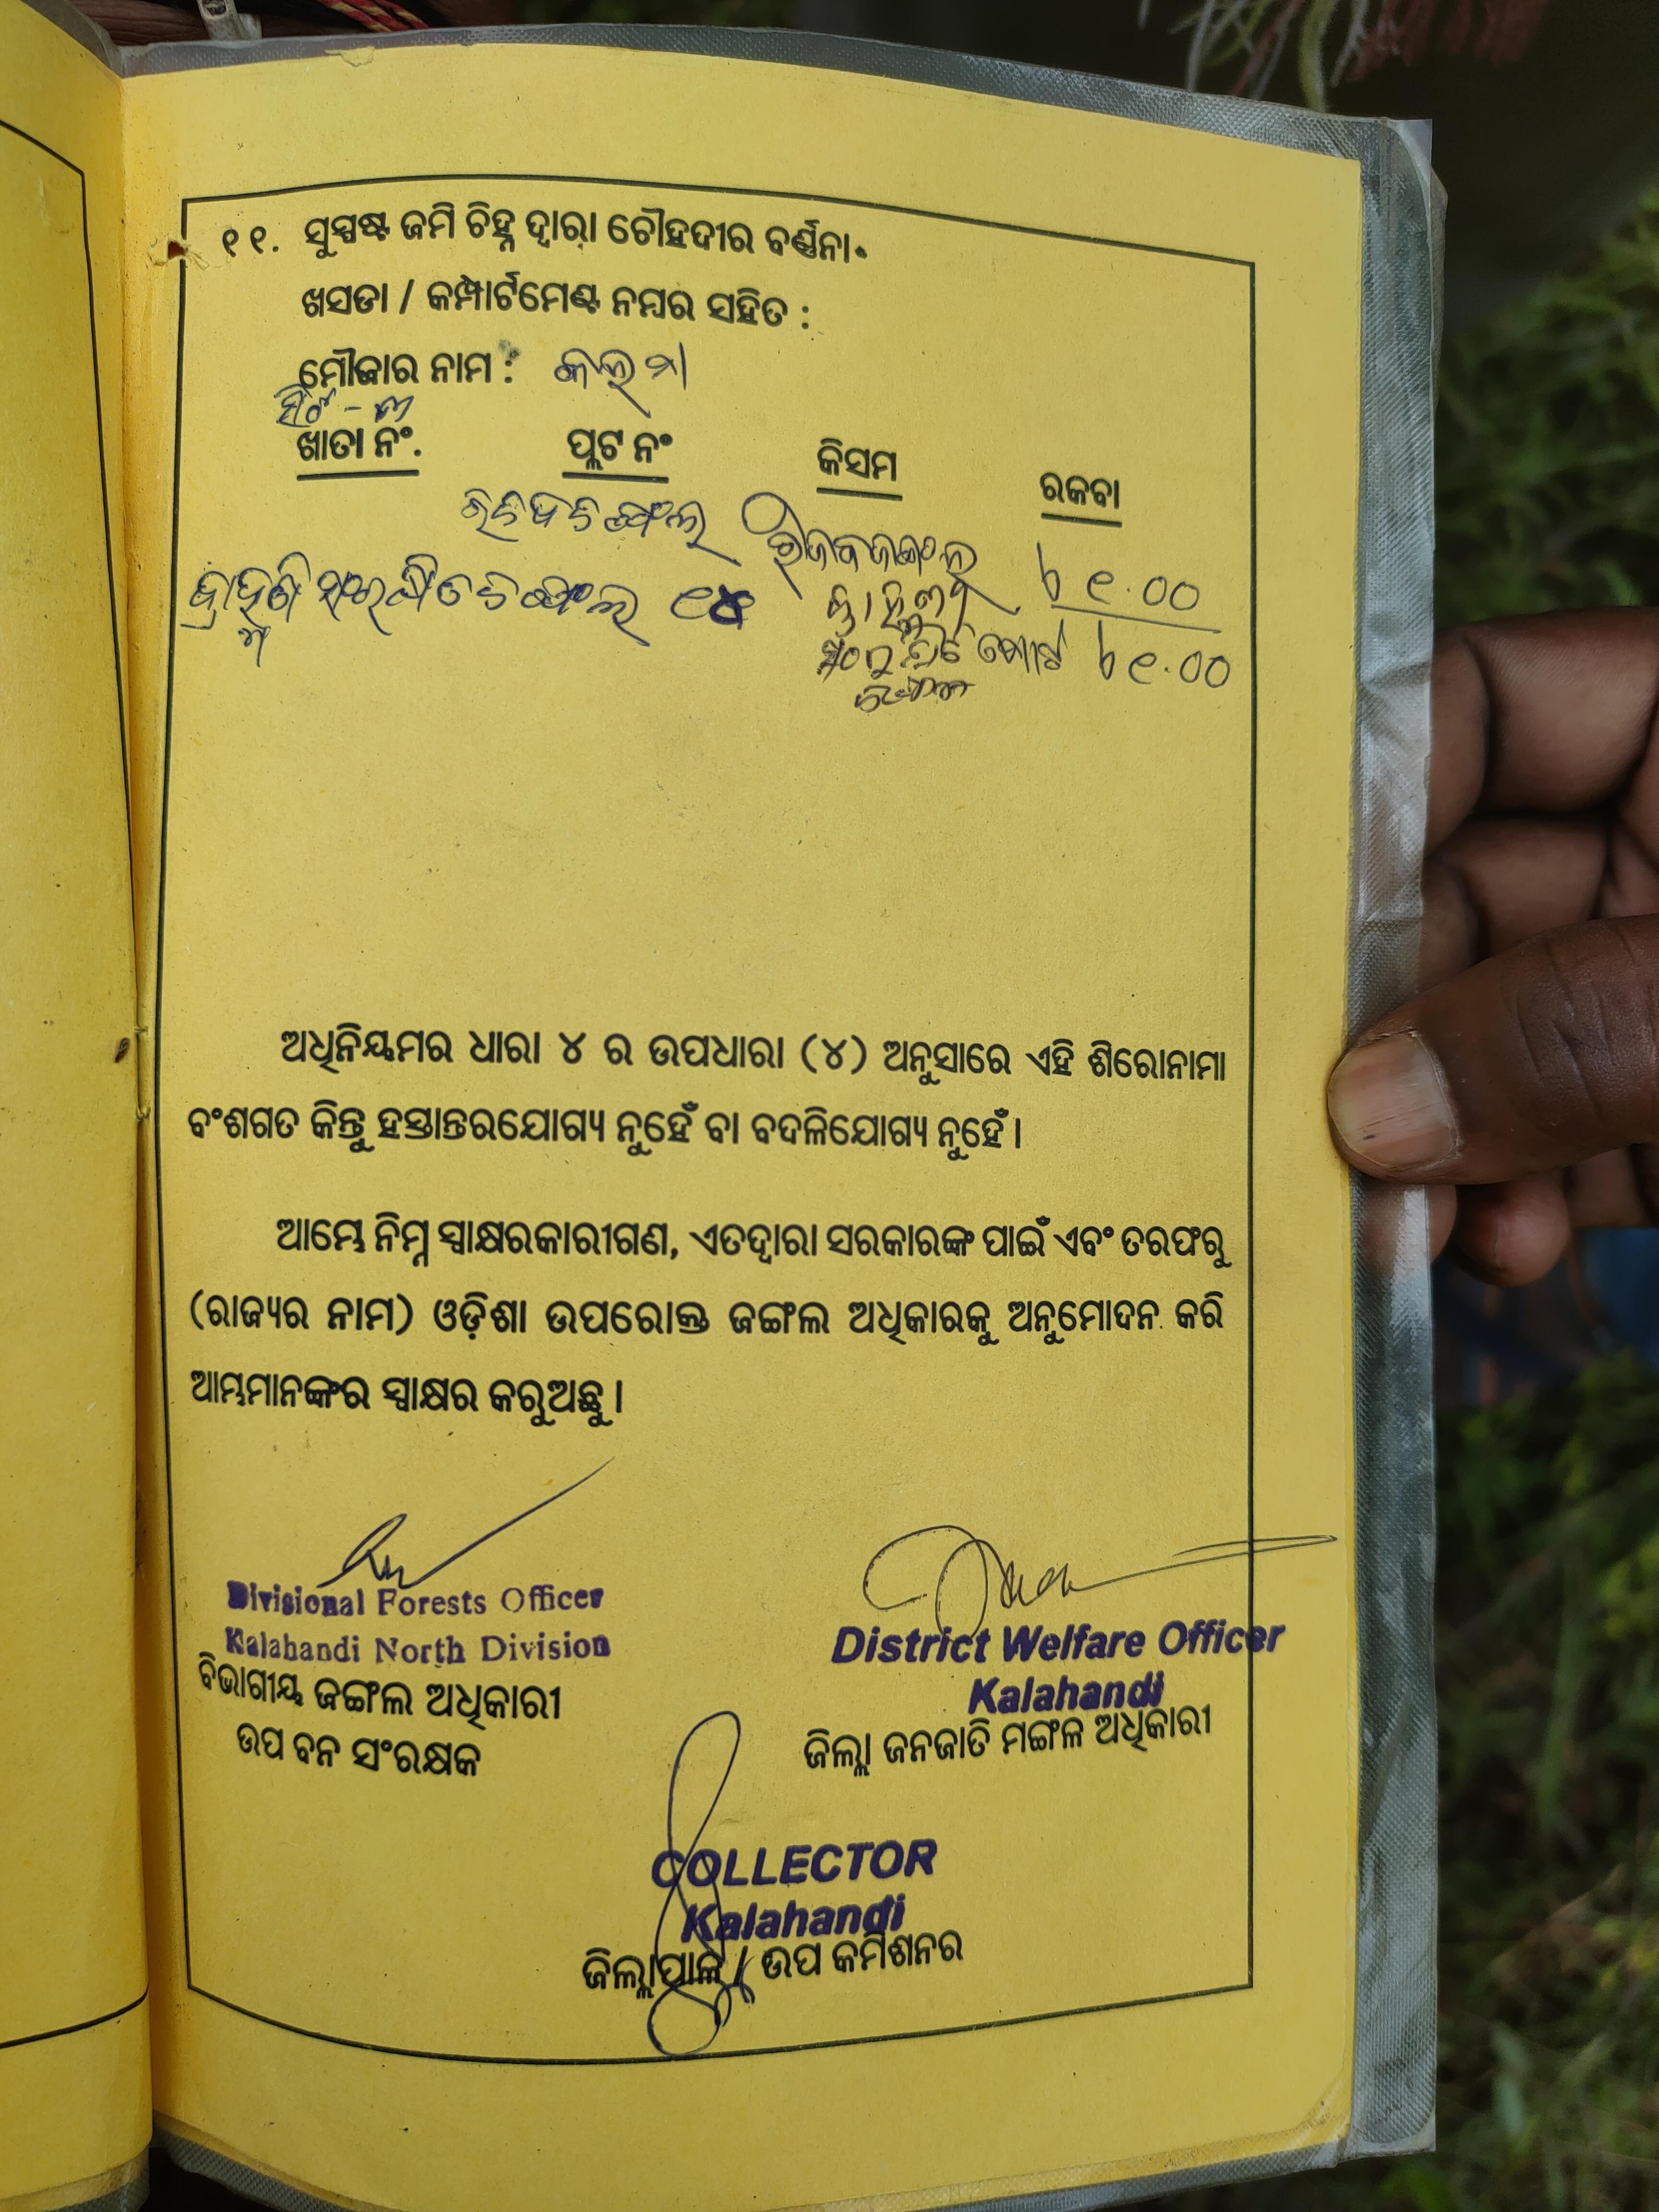 ୧୧. ସୁସ୍ପଷ୍ଟ ଜମି ଚିହ୍ନ ଦ୍ଵାରା ଚୌହଦୀର ବର୍ଣ୍ଣନା.
ଖସଡା / କମ୍ପାର୍ଟମେଣ୍ଟ ନମ୍ବର ସହିତ :
ମୌଜାର ନାମ :
ଖାତା ନଂ. ପ୍ଲଟ ନଂ କିସମ ରକବା
୮୧.୦୦
୮୧.୦୦
ଅଧିନିୟମର ଧାରା ୪ ର ଉପଧାରା (୪) ଅନୁସାରେ ଏହି ଶିରୋନାମା
ବଂଶଗତ କିନ୍ତୁ ହସ୍ତାନ୍ତରଯୋଗ୍ୟ ନୁହେଁ ବା ବଦଳିଯୋଗ୍ୟ ନୁହେଁ।
ଆମ୍ଭେ ନିମ୍ନ ସ୍ଵାକ୍ଷରକାରୀଗଣ, ଏତଦ୍ଵାରା ସରକାରଙ୍କ ପାଇଁ ଏବଂ ତରଫରୁ
(ରାଜ୍ୟର ନାମ) ଓଡ଼ିଶା ଉପରୋକ୍ତ ଜଙ୍ଗଲ ଅଧିକାରକୁ ଅନୁମୋଦନ କରି
ଆମ୍ଭମାନଙ୍କର ସ୍ଵାକ୍ଷର କରୁଅଛୁ।
Divisional Forests Officer
Kalahandi North Division
ବିଭାଗୀୟ ଜଙ୍ଗଲ ଅଧିକାରୀ
ଉପ ବନ ସଂରକ୍ଷକ
District Welfare Officer
Kalahandi
ଜିଲ୍ଲା ଜନଜାତି ମଙ୍ଗଳ ଅଧିକାରୀ
COLLECTOR
Kalahandi
ଜିଲ୍ଲାପାଳ / ଉପ କମିଶନର